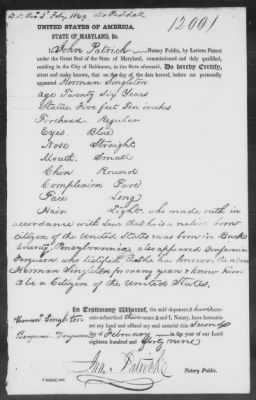 12001
UNITED STATES OF AMERICA,
STATE OF MARYLAND, Sc.
I, John Patrick Notary Public, by Letters Patent
under the Great Seal of the State of Maryland, commissioned and duly qualified,
residing in the City of Baltimore, in the State aforesaid, Do hereby Certify,
attest and make known, that on the day of the date hereof, before me personally
appeared Herman Singleton
Age Twenty Six Years
Stature Five feet Ten inches
Forehead Regular
Eyes Blue
Nose Straight
Mouth Small
Chin Round
Complexion Fare
Face Long
Hair Light, who made oath in
accordance with Law that he is a native born
Citizen of the United States was born in Bucks
County, Pennsylvania also appeared Benjamin
Ferguson who testified that he has known the above
Herman Singleton for many years & knows him
to be a Citizen of the United States.
In Testimony Whereof, the said deponent s have
hereunto subscribed their name s and I, Notary, have hereunto
set my hand and affixed my notarial seal this Second
day of February in the year of our Lord
eighteen hundred and forty nine
Herman Singleton
Benjamin Ferguson
Jno. Patrick
Notary Public.